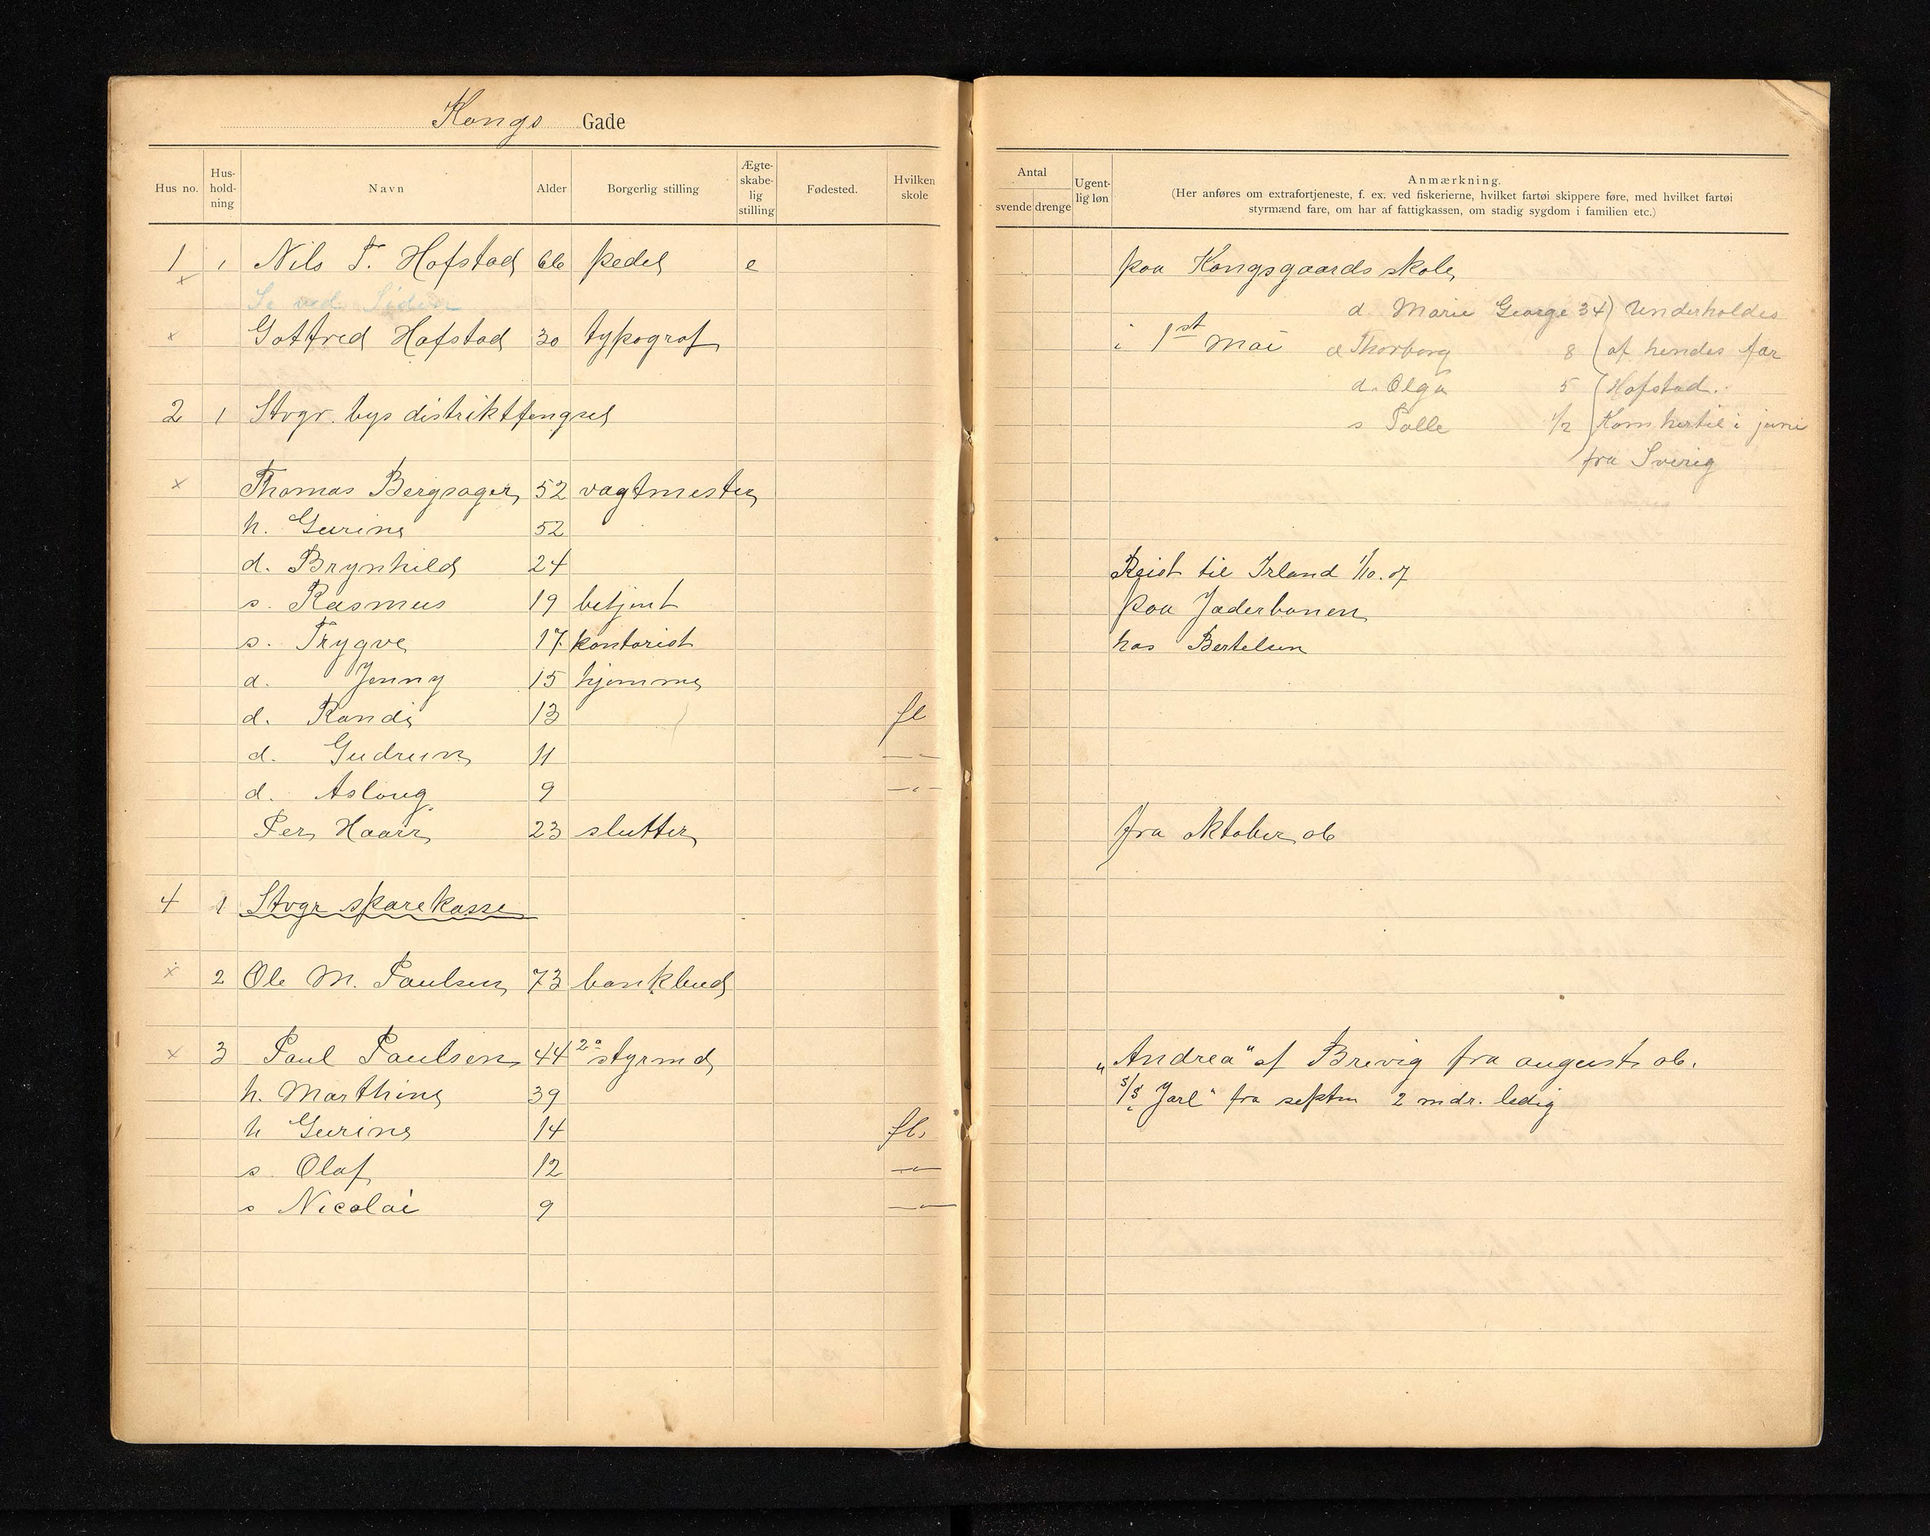 Kongs Gade
Hus no. Hus-hold-ning Navn Alder Borgerlig stilling Ægte-skabe-lig stilling Fødested. Hvilken skole
1 1 Nils T. Hofstad 66 pedel e
Se ved Siden
Gotfred Hofstad 30 typograf
2 1 Stvgr. bys distriktfengsel
Thomas Bergsager 52 vagtmester
h. Gurine 52
d. Brynhild 24
s. Rasmus 19 betjent
s. Trygve 17 kontorist
d. Jenny 15 hjemme
d. Randi 13 fl
d. Gudrun 11 —"—
d. Aslaug 9 —"—
Per Haarr 23 slutter
4 1 Stvgr sparekasse
2 Ole M. Paulsen 73 bankbud
3 Paul Paulsen 44 2n styrmd
h. Marthine 39
h Gurine 14 fl.
s. Olaf 12 —"—
s Nicolai 9 —"—
Antal svende drenge Ugent-lig løn Anmærkning.
(Her anføres om extrafortjeneste, f. ex. ved fiskerierne, hvilket fartøi skippere føre, med hvilket fartøi
styrmænd fare, om har af fattigkassen, om stadig sygdom i familien etc.)
paa Kongsgaards skole
d Marie George 34 Underholdes
i 1st Mai d Thorborg 8 af hendes far
d. Olga 5 Hofstad.
s Palle 1/2 Kom hertil i juni
fra Sverig
Reist til Irland 1/10. 07
paa Jæderbanen
hos Bertelsen
fra oktober 06
„Andrea" af Brevig fra august 06.
s/s „Jarl" fra septm 2 mdr. ledig